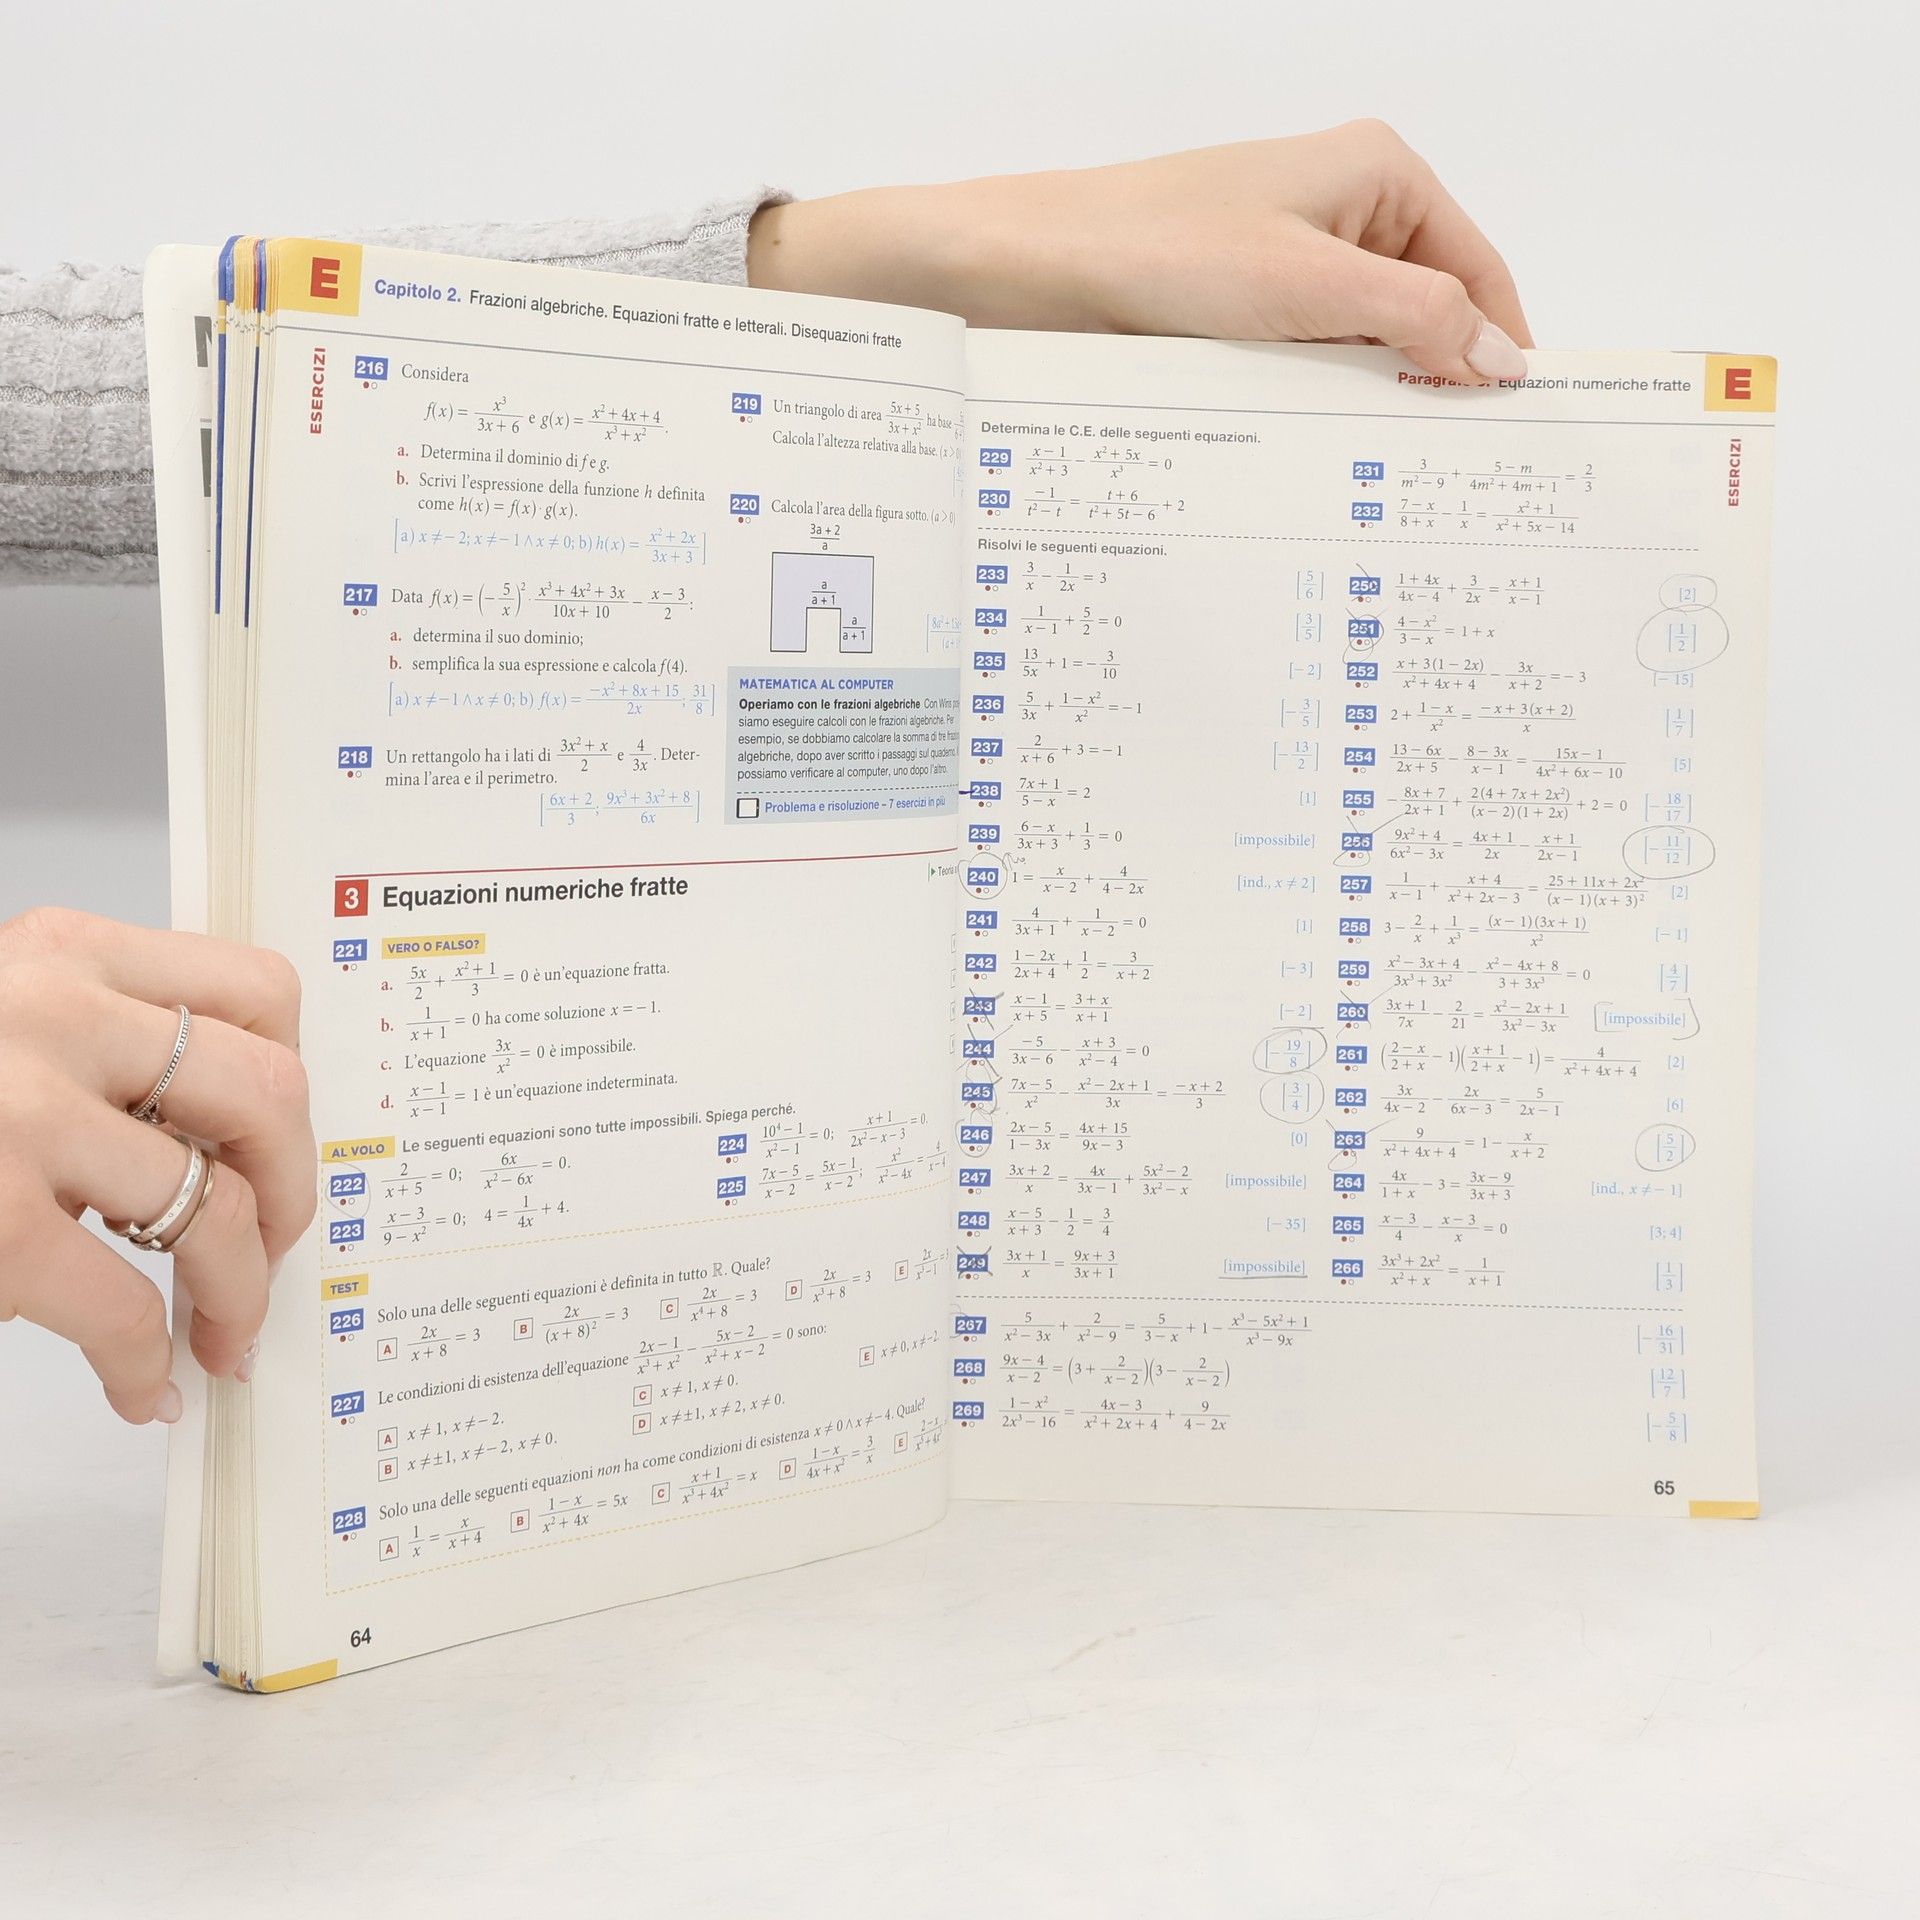 E
Capitolo 2. Frazioni algebriche. Equazioni fratte e letterali. Disequazioni fratte
ESERCIZI
216 Considera
f(x) = x³/(3x + 6) e g(x) = (x² + 4x + 4)/(x³ + x²).
a. Determina il dominio di f e g.
b. Scrivi l'espressione della funzione h definita
come h(x) = f(x) · g(x).
[a) x ≠ − 2; x ≠ − 1 ∧ x ≠ 0; b) h(x) = (x² + 2x)/(3x + 3)]
217 Data f(x) = (− 5/x)² · (x³ + 4x² + 3x)/(10x + 10) − (x − 3)/2:
a. determina il suo dominio;
b. semplifica la sua espressione e calcola f(4).
[a) x ≠ −1 ∧ x ≠ 0; b) f(x) = (−x² + 8x + 15)/2x; 31/8]
218 Un rettangolo ha i lati di (3x² + x)/2 e 4/3x. Deter-
mina l'area e il perimetro.
[(6x + 2)/3; (9x³ + 3x² + 8)/6x]
219 Un triangolo di area (5x + 5)/(3x + x²) ha base
Calcola l'altezza relativa alla base.
220 Calcola l'area della figura sotto. (a > 0)
(3a + 2)/a
a/(a + 1)
a/(a + 1)
MATEMATICA AL COMPUTER
Operiamo con le frazioni algebriche Con
siamo eseguire calcoli con le frazioni algebriche. Per
esempio, se dobbiamo calcolare la somma di tre
algebriche, dopo aver scritto i passaggi sul quaderno,
possiamo verificare al computer, uno dopo l'altro.
Problema e risoluzione – 7 esercizi in più
3 Equazioni numeriche fratte
221 VERO O FALSO?
a. 5x/2 + (x² + 1)/3 = 0 è un'equazione fratta.
b. 1/(x + 1) = 0 ha come soluzione x = − 1.
c. L'equazione 3x/x² = 0 è impossibile.
d. (x − 1)/(x − 1) = 1 è un'equazione indeterminata.
AL VOLO Le seguenti equazioni sono tutte impossibili. Spiega perché.
222 2/(x + 5) = 0; 6x/(x² − 6x) = 0.
223 (x − 3)/(9 − x²) = 0; 4 = 1/4x + 4.
224 (10⁴ − 1)/(x² − 1) = 0; (x + 1)/(2x² − x − 3) = 0.
225 (7x − 5)/(x − 2) = (5x − 1)/(x − 2); x²/(x² − 4x) = 4/(x − 4)
TEST
226 Solo una delle seguenti equazioni è definita in tutto ℝ. Quale?
A 2x/(x + 8) = 3 B 2x/(x + 8)² = 3 C 2x/(x⁴ + 8) = 3 D 2x/(x³ + 8) = 3 E
227 Le condizioni di esistenza dell'equazione (2x − 1)/(x³ + x²) − (5x − 2)/(x² + x − 2) = 0 sono:
A x ≠ 1, x ≠ − 2. C x ≠ 1, x ≠ 0. E x ≠ 0, x ≠ −2
B x ≠ ±1, x ≠ − 2, x ≠ 0. D x ≠ ±1, x ≠ 2, x ≠ 0.
228 Solo una delle seguenti equazioni non ha come condizioni di esistenza x ≠ 0 ∧ x ≠ − 4. Quale?
A 1/x = x/(x + 4) B (1 − x)/(x² + 4x) = 5x C (x + 1)/(x³ + 4x²) = x D (1 − x)/(4x + x²) = 3/x E
64
Equazioni numeriche fratte
E
ESERCIZI
Determina le C.E. delle seguenti equazioni.
229 (x − 1)/(x² + 3) − (x² + 5x)/x³ = 0
230 −1/(t² − t) = (t + 6)/(t² + 5t − 6) + 2
231 3/(m² − 9) + (5 − m)/(4m² + 4m + 1) = 2/3
232 (7 − x)/(8 + x) − 1/x = (x² + 1)/(x² + 5x − 14)
Risolvi le seguenti equazioni.
233 3/x − 1/2x = 3 [5/6]
234 1/(x − 1) + 5/2 = 0 [3/5]
235 13/5x + 1 = − 3/10 [− 2]
236 5/3x + (1 − x²)/x² = − 1 [− 3/5]
237 2/(x + 6) + 3 = − 1 [− 13/2]
238 (7x + 1)/(5 − x) = 2 [1]
239 (6 − x)/(3x + 3) + 1/3 = 0 [impossibile]
240 1 = x/(x − 2) + 4/(4 − 2x) [ind., x ≠ 2]
241 4/(3x + 1) + 1/(x − 2) = 0 [1]
242 (1 − 2x)/(2x + 4) + 1/2 = 3/(x + 2) [− 3]
243 (x − 1)/(x + 5) = (3 + x)/(x + 1) [− 2]
244 −5/(3x − 6) − (x + 3)/(x² − 4) = 0 [− 19/8]
245 (7x − 5)/x² − (x² − 2x + 1)/3x = (−x + 2)/3 [3/4]
246 (2x − 5)/(1 − 3x) = (4x + 15)/(9x − 3) [0]
247 (3x + 2)/x = 4x/(3x − 1) + (5x² − 2)/(3x² − x) [impossibile]
248 (x − 5)/(x + 3) − 1/2 = 3/4 [− 35]
249 (3x + 1)/x = (9x + 3)/(3x + 1) [impossibile]
250 (1 + 4x)/(4x − 4) + 3/2x = (x + 1)/(x − 1) [2]
251 (4 − x²)/(3 − x) = 1 + x [1/2]
252 (x + 3(1 − 2x))/(x² + 4x + 4) − 3x/(x + 2) = − 3 [− 15]
253 2 + (1 − x)/x² = (−x + 3(x + 2))/x [1/7]
254 (13 − 6x)/(2x + 5) − (8 − 3x)/(x − 1) = (15x − 1)/(4x² + 6x − 10) [5]
255 − (8x + 7)/(2x + 1) + 2(4 + 7x + 2x²)/((x − 2)(1 + 2x)) + 2 = 0 [− 18/17]
256 (9x² + 4)/(6x² − 3x) = (4x + 1)/2x − (x + 1)/(2x − 1) [− 11/12]
257 1/(x − 1) + (x + 4)/(x² + 2x − 3) = (25 + 11x + 2x²)/((x − 1)(x + 3)²) [2]
258 3 − 2/x + 1/x³ = (x − 1)(3x + 1)/x² [− 1]
259 (x² − 3x + 4)/(3x³ + 3x²) − (x² − 4x + 8)/(3 + 3x³) = 0 [4/7]
260 (3x + 1)/7x − 2/21 = (x² − 2x + 1)/(3x² − 3x) [impossibile]
261 ((2 − x)/(2 + x) − 1)((x + 1)/(2 + x) − 1) = 4/(x² + 4x + 4) [2]
262 3x/(4x − 2) − 2x/(6x − 3) = 5/(2x − 1) [6]
263 9/(x² + 4x + 4) = 1 − x/(x + 2) [5/2]
264 4x/(1 + x) − 3 = (3x − 9)/(3x + 3) [ind., x ≠ − 1]
265 (x − 3)/4 − (x − 3)/x = 0 [3; 4]
266 (3x³ + 2x²)/(x² + x) = 1/(x + 1) [1/3]
267 5/(x² − 3x) + 2/(x² − 9) = 5/(3 − x) + 1 − (x³ − 5x² + 1)/(x³ − 9x) [− 16/31]
268 (9x − 4)/(x − 2) = (3 + 2/(x − 2))(3 − 2/(x − 2)) [12/7]
269 (1 − x²)/(2x³ − 16) = (4x − 3)/(x² + 2x + 4) + 9/(4 − 2x) [− 5/8]
65